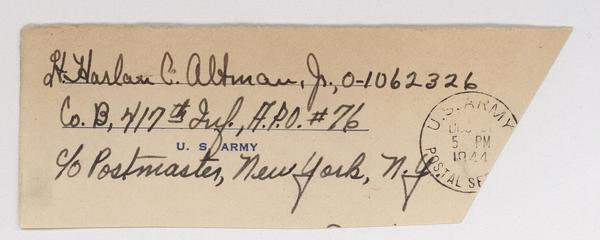 Lt. Harlan C. Altman, Jr., O-1062326
Co. B, 417th Inf., A.P.O. #76
U. S. ARMY
c/o Postmaster, New York, N.Y.
U.S. ARMY
5 PM
1944
POSTAL SE